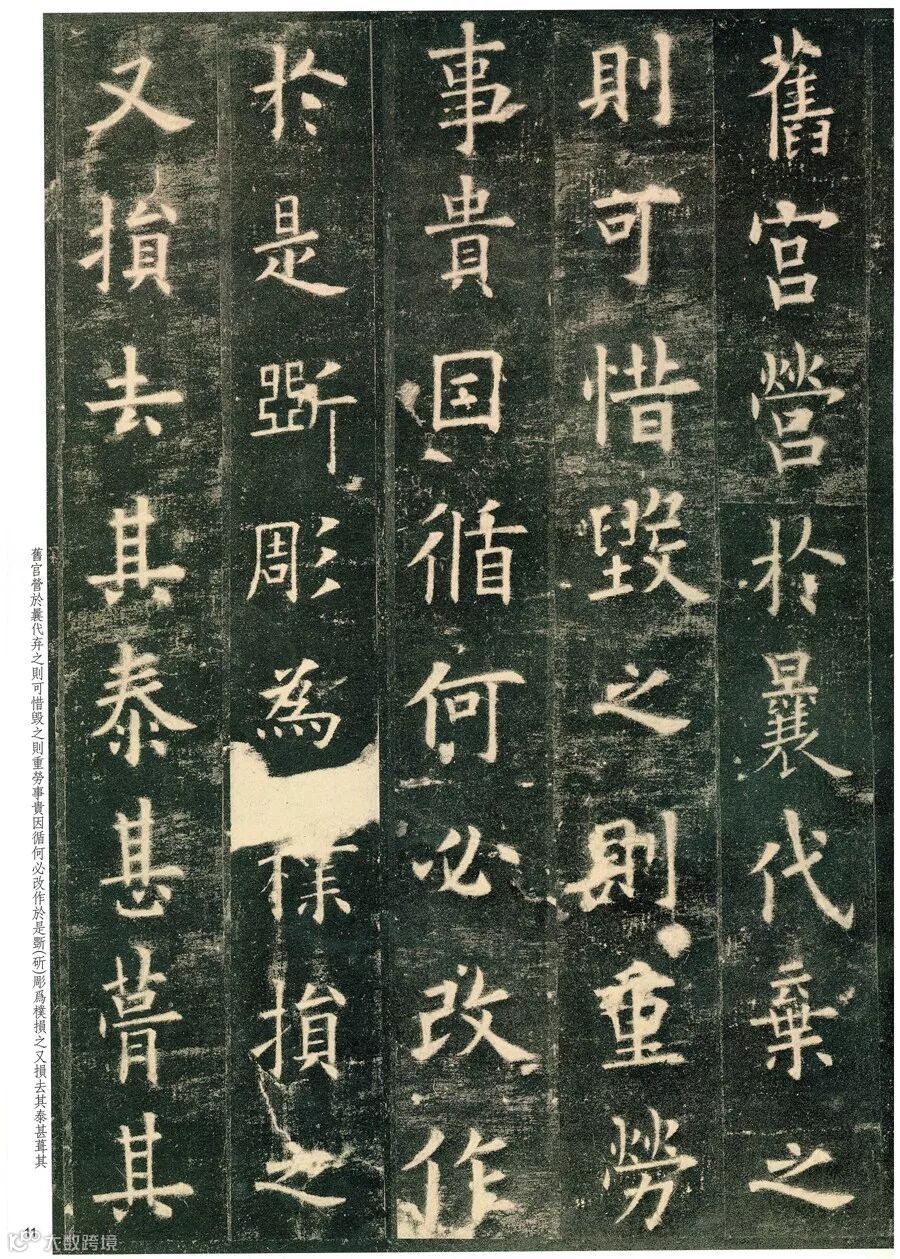 舊宮營於曩代棄之
則可惜毀之則重勞
事貴因循何必改作
於是斲彫為樸損之
又損去其泰甚葺其
舊宮營於曩代弃之則可惜毀之則重勞事貴因循何必改作於是斲(斫)彫爲樸損之又損去其泰甚葺其
11
大数跨境